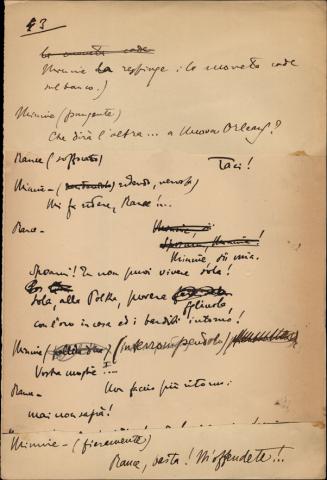 43
la moneta cade
Minnie la respinge: la moneta cade
sul banco.)
Minnie (pungente)
Che dirà l'altra... a Nuova Orleans?
Rance (soffocato) Taci!
Minnie - ridendo, nervosa)
Mi fa ridere, Rance!...
Rance -
Minnie, sii mia.
Sposami! Tu non puoi vivere sola!
Sola, alla Polka, povera figliuola
con l'oro in casa ed i banditi intorno!
Minnie (interrompendolo)
Vostra moglie!...
Rance - Non faccio più ritorno:
mai non saprà!
Minnie - (fieramente)
Rance, basta! M'offendete!...